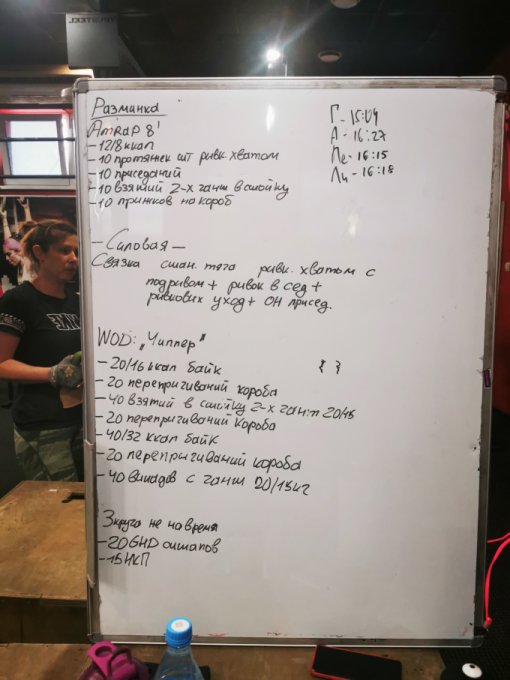 Разминка
AmRaP 8'
-12/8 ккал
-10 протяжек шт. рывк. хватом
-10 приседаний
-10 взятий 2-х гант в стойку
-10 прыжков на короб
Г-15:04
А-16:27
Ле-16:15
Ли-16:18
-Силовая-
Связка стан. тяга рывк. хватом с
подрывом + рывок в сед +
рывковых уход + ОН присед.
WOD: „Чиппер"
-20/16 ккал байк { }
-20 перепрыгиваний короба
-40 взятий в стойку 2-х гант 20/15
-20 перепрыгиваний короба
-40/32 ккал байк
-20 перепрыгиваний короба
-40 выпадов с гант 20/15кг
3круга не на время
-20GHD ситапов
-15НКП